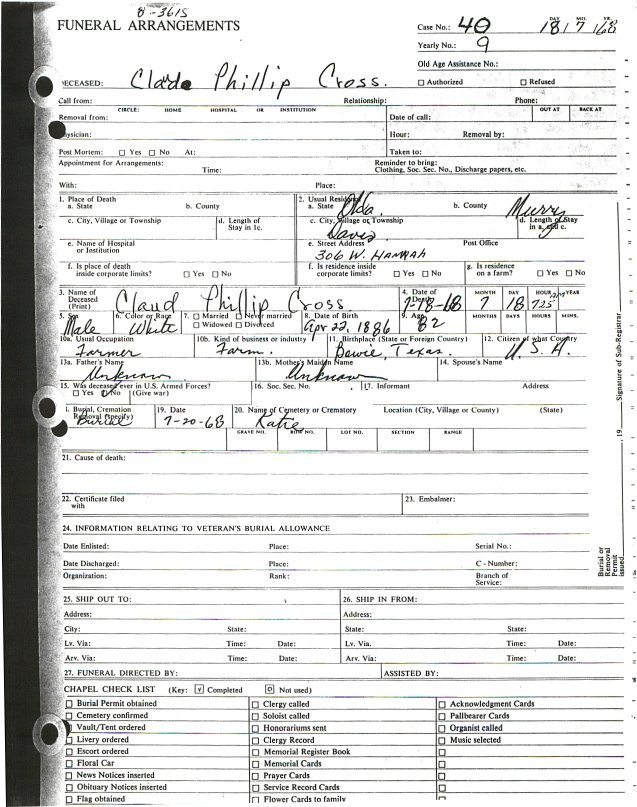 8-3615
FUNERAL ARRANGEMENTS
Case No.: 40
DAY MO. YR.
18/7/68
Yearly No.: 9
Old Age Assistance No.:
DECEASED: Claude Phillip Cross.
☐ Authorized ☐ Refused
Call from: Relationship: Phone:
CIRCLE: HOME HOSPITAL OR INSTITUTION OUT AT BACK AT
Removal from: Date of call:
Physician: Hour: Removal by:
Post Mortem: ☐ Yes ☐ No At: Taken to:
Appointment for Arrangements: Time: Reminder to bring:
Clothing, Soc. Sec. No., Discharge papers, etc.
With: Place:
1. Place of Death
a. State b. County
c. City, Village or Township d. Length of Stay in 1c.
e. Name of Hospital or Institution
f. Is place of death inside corporate limits? ☐ Yes ☐ No
2. Usual Residence
a. State Okla. b. County Murry
c. City, Village or Township Davis d. Length of Stay in a. and c.
e. Street Address 306 W. Hannah Post Office
f. Is residence inside corporate limits? ☐ Yes ☐ No
g. Is residence on a farm? ☐ Yes ☐ No
3. Name of Deceased (Print) Claud Phillip Cross
4. Date of Death 7-18-68
MONTH 7 DAY 18 HOUR 7:25 AM YEAR
5. Sex Male
6. Color or Race White
7. ☐ Married ☐ Never married
☐ Widowed ☐ Divorced
8. Date of Birth Apr 22, 1886
9. Age 82
MONTHS DAYS HOURS MINS.
10a. Usual Occupation Farmer
10b. Kind of business or industry Farm.
11. Birthplace (State or Foreign Country) Bowie, Texas.
12. Citizen of what Country U.S.A.
13a. Father's Name Unknown
13b. Mother's Maiden Name Unknown
14. Spouse's Name
15. Was deceased ever in U.S. Armed Forces?
☐ Yes ☑ No (Give war)
16. Soc. Sec. No.
17. Informant Address
Burial, Cremation Removal (specify) Burial
19. Date 7-20-68
20. Name of Cemetery or Crematory Katie
Location (City, Village or County) (State)
GRAVE NO. ROW NO. LOT NO. SECTION RANGE
21. Cause of death:
22. Certificate filed with
23. Embalmer:
24. INFORMATION RELATING TO VETERAN'S BURIAL ALLOWANCE
Date Enlisted: Place: Serial No.:
Date Discharged: Place: C - Number:
Organization: Rank: Branch of Service:
25. SHIP OUT TO: 26. SHIP IN FROM:
Address: Address:
City: State: State: State:
Lv. Via: Time: Date: Lv. Via. Time: Date:
Arv. Via: Time: Date: Arv. Via: Time: Date:
27. FUNERAL DIRECTED BY: ASSISTED BY:
CHAPEL CHECK LIST (Key: ☑ Completed [O] Not used)
☐ Burial Permit obtained ☐ Clergy called ☐ Acknowledgment Cards
☐ Cemetery confirmed ☐ Soloist called ☐ Pallbearer Cards
☐ Vault/Tent ordered ☐ Honorariums sent ☐ Organist called
☐ Livery ordered ☐ Clergy Record ☐ Music selected
☐ Escort ordered ☐ Memorial Register Book ☐
☐ Floral Car ☐ Memorial Cards ☐
☐ News Notices inserted ☐ Prayer Cards ☐
☐ Obituary Notices inserted ☐ Service Record Cards ☐
☐ Flag obtained ☐ Flower Cards to family ☐
Burial or Removal Permit issued 19 Signature of Sub-Registrar